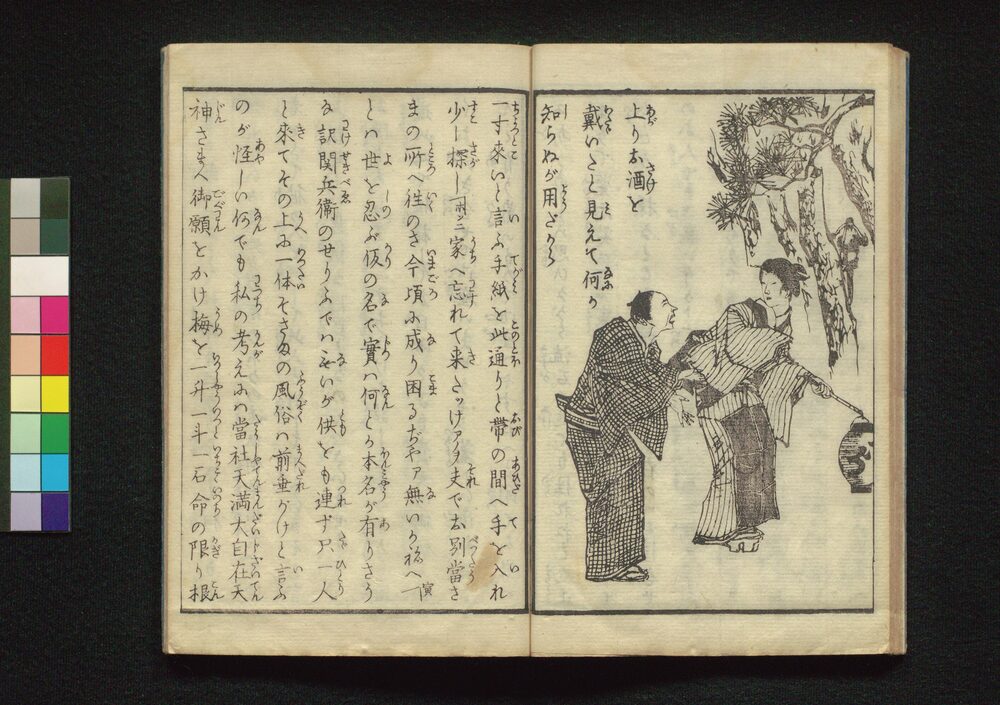 上りお酒を
戴いたと見えて何か
知らぬが用ざから
一寸來いと言ふ手紙を此通りと帯の間へ手を入れ
少し探し 家へ忘れて来たッけアヽ夫でお別當さ
まの所へ往のさ今頃に成り困るぢやア無いか祢へ
とハ世を忍ぶ仮の名で實ハ何とか本名が有りさう
な訳関兵衛のせりふでハ無いが供をも連ず只一人
と來てその上に一体そさまの風俗ハ前垂がけと言ふ
のが怪しい何でも私の考えにハ當社天満大自在天
神さまへ御願をかけ梅を一升一斗一石命の限り根